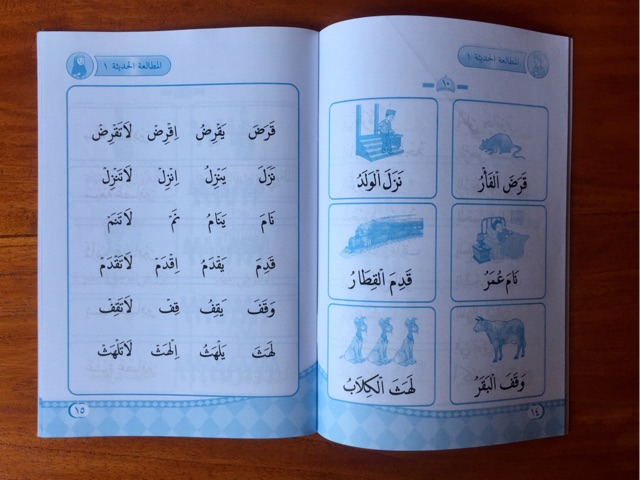 المطالعة الحديثة ١
١٠
قَرَضَ الْفَأْرُ
نَزَلَ الْوَلَدُ
نَامَ عُمَرُ
قَدِمَ الْقِطَارُ
وَقَفَ الْبَقَرُ
لَهَثَ الْكِلَابُ
١٤
المطالعة الحديثة ١
قَرَضَ يَقْرِضُ اِقْرِضْ لَاتَقْرِضْ
نَزَلَ يَنْزِلُ اِنْزِلْ لَاتَنْزِلْ
نَامَ يَنَامُ نَمْ لَاتَنَمْ
قَدِمَ يَقْدَمُ اِقْدَمْ لَاتَقْدَمْ
وَقَفَ يَقِفُ قِفْ لَاتَقِفْ
لَهَثَ يَلْهَثُ اِلْهَثْ لَاتَلْهَثْ
١٥